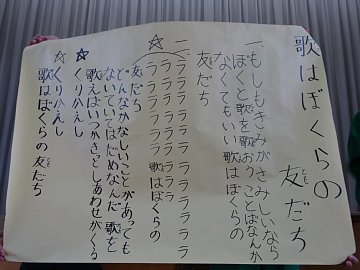 歌はぼくらの
友だち
とも
一、もしもきみがさみしいなら
ぼくと歌を歌おうことばなんか
なくてもいい歌はぼくらの
友だち
☆ラララララララララ
ラララララララララ
ラララララララ歌はぼくらの
友だち
二、どんなかなしいことがあっても
ないていてはだめなんだ歌を
歌えばいつかきとしあわせがくる
☆くりかえし
☆くりかえし
歌はぼくらの友だち